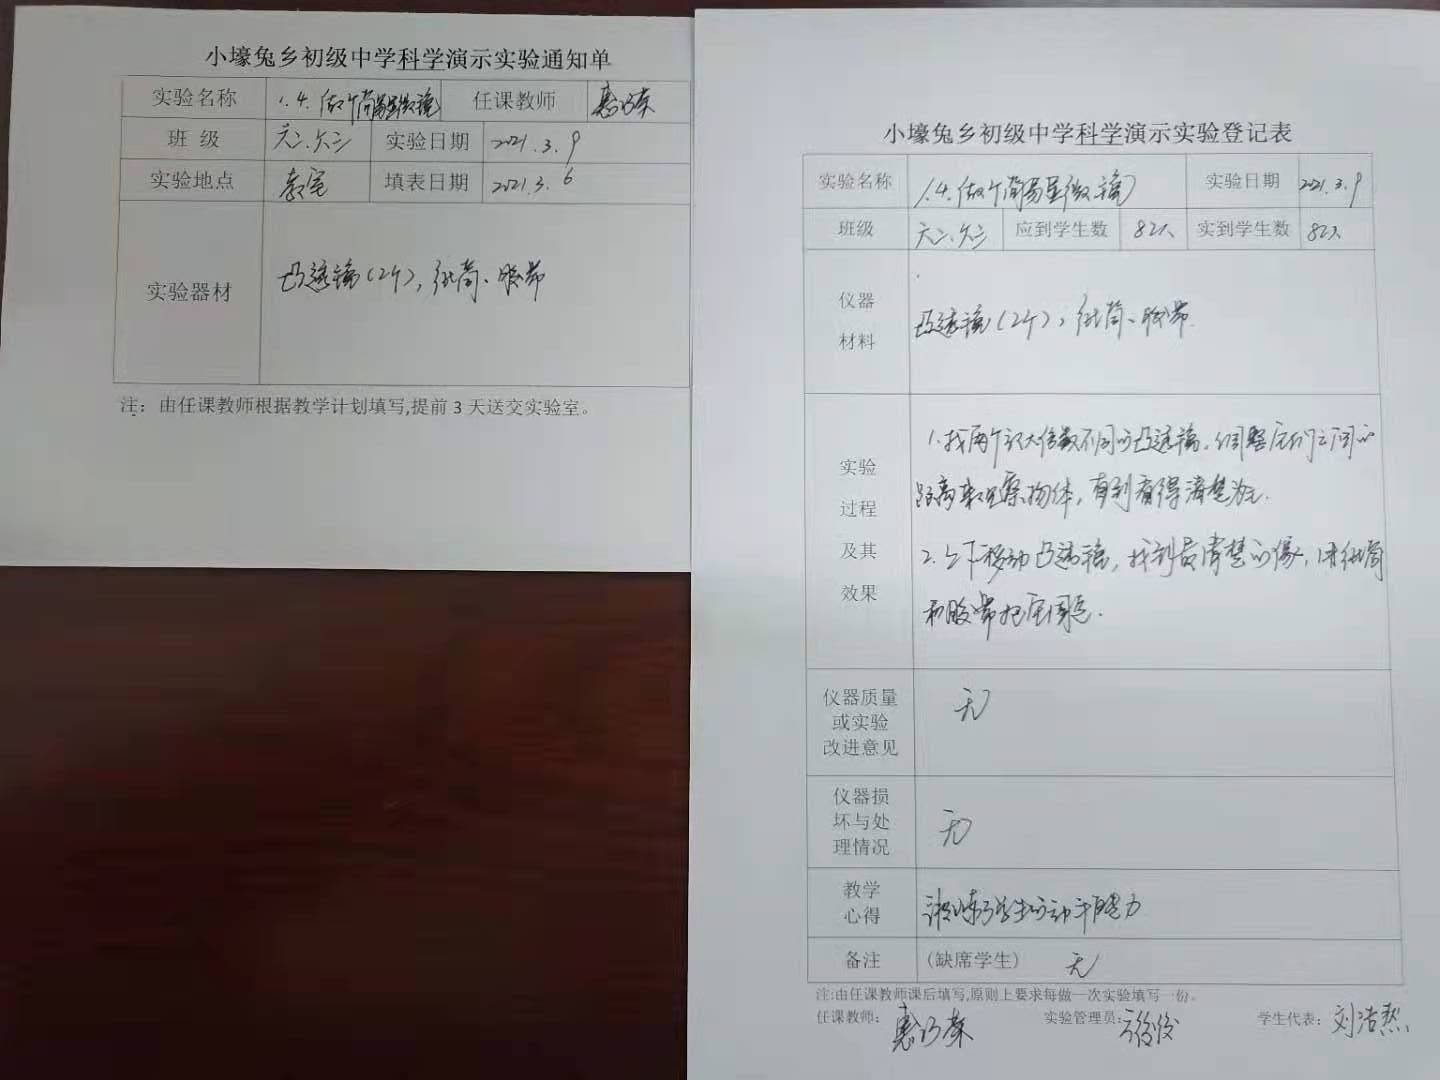 小壕兔乡初级中学科学演示实验通知单
实验名称 1.4.做个简易显微镜 任课教师 惠巧荣
班 级 六二、六三 实验日期 2021.3.9
实验地点 教室 填表日期 2021.3.6
实验器材 凸透镜(2个),纸筒、胶带
注：由任课教师根据教学计划填写,提前3天送交实验室。
小壕兔乡初级中学科学演示实验登记表
实验名称 1.4.做个简易显微镜 实验日期 2021.3.9
班级 六二、六三 应到学生数 82人 实到学生数 82人
仪器
材料
凸透镜(2个),纸筒、胶带.
实验
过程
及其
效果
1.找两个放大倍数不同的凸透镜,调整它们之间的
距离来观察物体,直到看得清楚为止.
2.上下移动凸透镜,找到最清楚的像,用纸筒
和胶带把它固定.
仪器质量
或实验
改进意见
无
仪器损
坏与处
理情况
无
教学
心得
训练了学生的动手能力
备注 (缺席学生) 无
注:由任课教师课后填写,原则上要求每做一次实验填写一份。
任课教师: 惠巧荣 实验管理员: 学生代表: 刘浩然